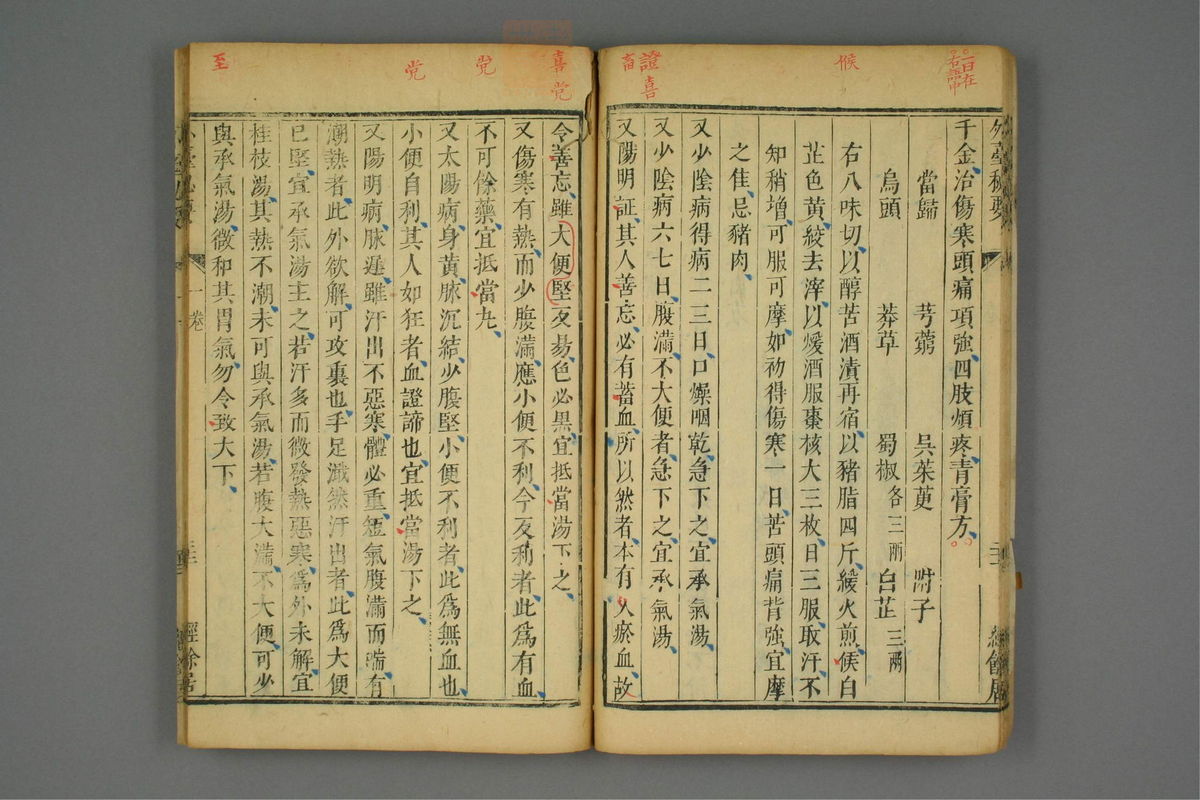 外臺秘要
千金治傷寒頭痛項強四肢煩疼青膏方
當歸 芎藭 吳茱萸 附子
烏頭 莽草 蜀椒各三兩 白芷三兩
右八味切以醇苦酒漬再宿以豬脂四斤緩火煎候白
芷色黃絞去滓以煖酒服棗核大三枚日三服取汗不
知稍增可服可摩如初得傷寒一日苦頭痛背強宜摩
之佳忌豬肉
又少陰病得病二三日口燥咽乾急下之宜承氣湯
又少陰病六七日腹滿不大便者急下之宜承氣湯
又陽明証其人善忘必有蓄血所以然者本有久瘀血故
令善忘雖大便堅反易色必黑宜抵當湯下之
又傷寒有熱而少腹滿應小便不利今反利者此為有血
不可餘藥宜抵當丸
又太陽病身黃脉沉結少腹堅小便不利者此為無血也
小便自利其人如狂者血證諦也宜抵當湯下之
又陽明病脉遲雖汗出不惡寒體必重短氣腹滿而喘有
潮熱者此外欲解可攻裏也手足濈然汗出者此為大便
已堅宜承氣湯主之若汗多而微發熱惡寒為外未解宜
桂枝湯其熱不潮未可與承氣湯若腹大滿不大便可少
與承氣湯微和其胃氣勿令致大下
候
證 喜
畜
喜 党
党
党
至
一卷
經餘居